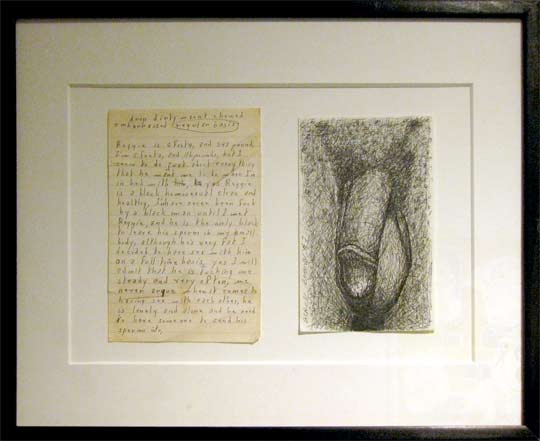 deep dirty
embarrassed regular basis
Reggie is feet, and pound
I'm feet, and pounds, but I
seem to do just about everything
that he want me to do when I'm
in bed with yes Reggie
is a black homosexual clean and
healthy, I have never been fuck
by a black man until I met
Reggie, and he is the only black
to leave his sperm in my small
body, although he's very fat I
decided to have sex with him
on a full time basis, yes I will
admit that he is fucking me
steady and very often, we
never argue when it comes to
having sex with each other, he
is lonely and alone and he need
to have someone to send his
sperm